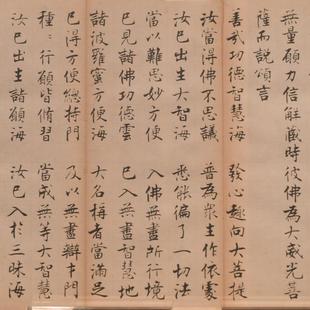 無量願力信解藏時彼佛為大威光菩
薩而說頌言
善哉功德智慧海 發心趣向大菩提
汝當得佛不思議 普為眾生作依處
汝已出生大智海 悉能徧了一切法
當以難思妙方便 入佛無盡所行境
已見諸佛功德雲 已入無盡智慧地
諸波羅蜜方便海 大名稱者當滿足
已得方便總持門 及以無盡辯才門
種〻行願皆修習 當成無等大智慧
汝已出生諸願海 汝已入於三昧海